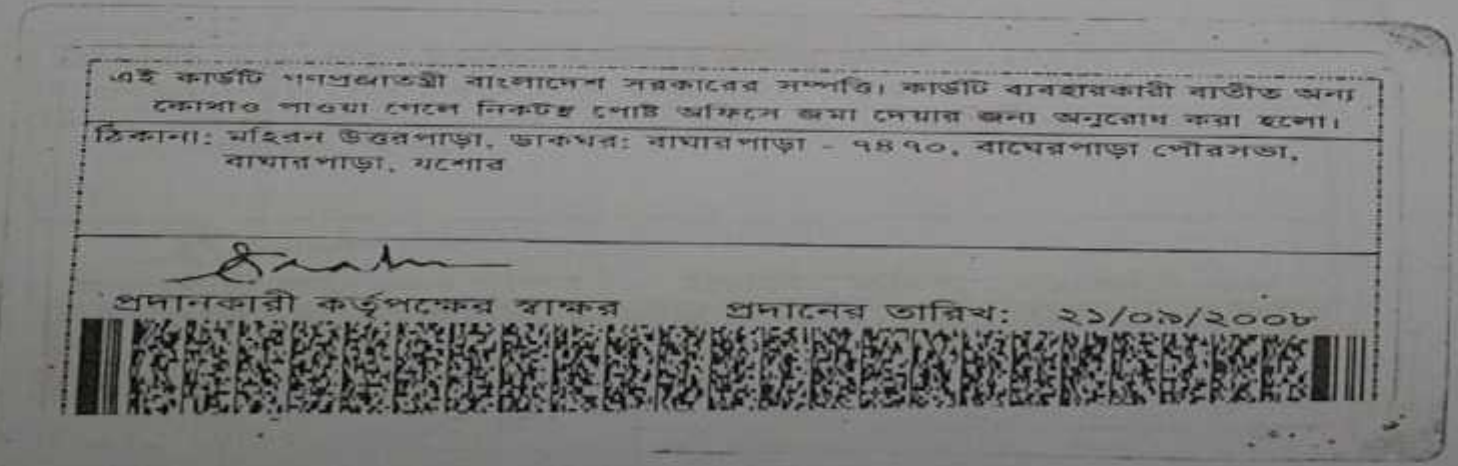 এই কার্ডটি গণপ্রজাতন্ত্রী বাংলাদেশ সরকারের সম্পত্তি। কার্ডটি ব্যবহারকারী ব্যতীত অন্য
কোথাও পাওয়া গেলে নিকটস্থ পোষ্ট অফিসে জমা দেয়ার জন্য অনুরোধ করা হলো।
ঠিকানা: মহিরন উত্তরপাড়া, ডাকঘর: বাঘারপাড়া - ৭৪৭০, বাঘেরপাড়া পৌরসভা,
বাঘারপাড়া, যশোর
প্রদানকারী কর্তৃপক্ষের স্বাক্ষর প্রদানের তারিখ: ২১/০৯/২০০৮